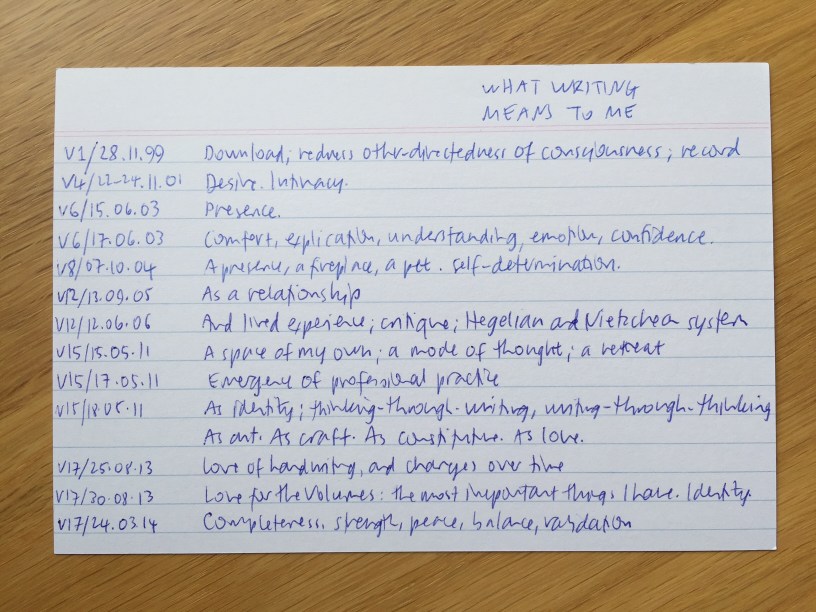 WHAT WRITING
MEANS TO ME
V1/28.11.99 Download; redness other-directedness of consciousness; record
V4/22-24.11.01 Desire. Intimacy.
V6/15.06.03 Presence.
V6/17.06.03 Comfort, explication, understanding, emotion, confidence.
V8/07.10.04 A presence, a fireplace, a pet. self-determination.
V12/13.09.05 As a relationship
V12/12.06.06 And lived experience; critique; Hegelian and Nietzchean system
V15/15.05.11 A space of my own; a mode of thought; a retreat
V15/17.05.11 Emergence of professional practice
V15/18.05.11 As identity; thinking-through-writing, writing-through-thinking
As art. As craft. As constitutive. As love.
V17/25.08.13 Love of handwriting, and changes over time
V17/30.08.13 Love for the Volumes: the most important things I have. Identity.
V17/24.03.14 Completeness, strength, peace, balance, validation